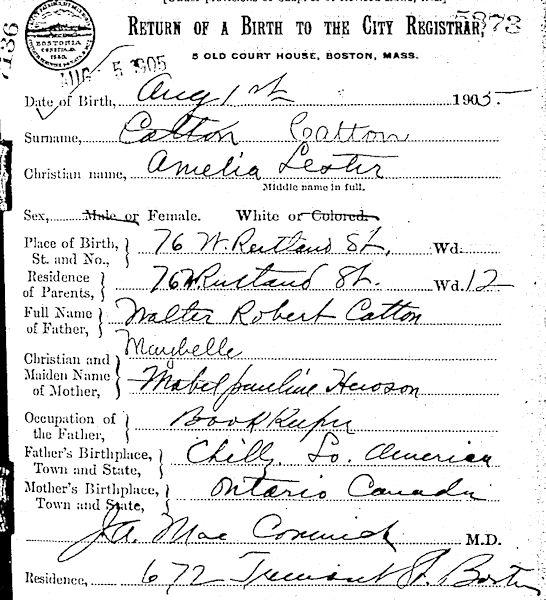 RETURN OF A BIRTH TO THE CITY REGISTRAR,
5873
7186
BOSTONIA
5 OLD COURT HOUSE, BOSTON, MASS.
AUG 5 1905
Date of Birth, Aug 1st 1905
Surname, Catton Catton
Christian name, Amelia Lester
Middle name in full.
Sex, Male or Female. White or Colored.
Place of Birth, St. and No., 76 W. Rutland St. Wd.
Residence of Parents, 76 W Rutland St. Wd. 12
Full Name of Father, Walter Robert Catton
Maybelle
Christian and Maiden Name of Mother, Mabel pauline
Occupation of the Father, Book Keeper
Father's Birthplace, Town and State, Chilly So. America
Mother's Birthplace, Town and State, Ontario Canada
J.A. Mac Cormick M.D.
Residence, 672 Tremont St. Boston